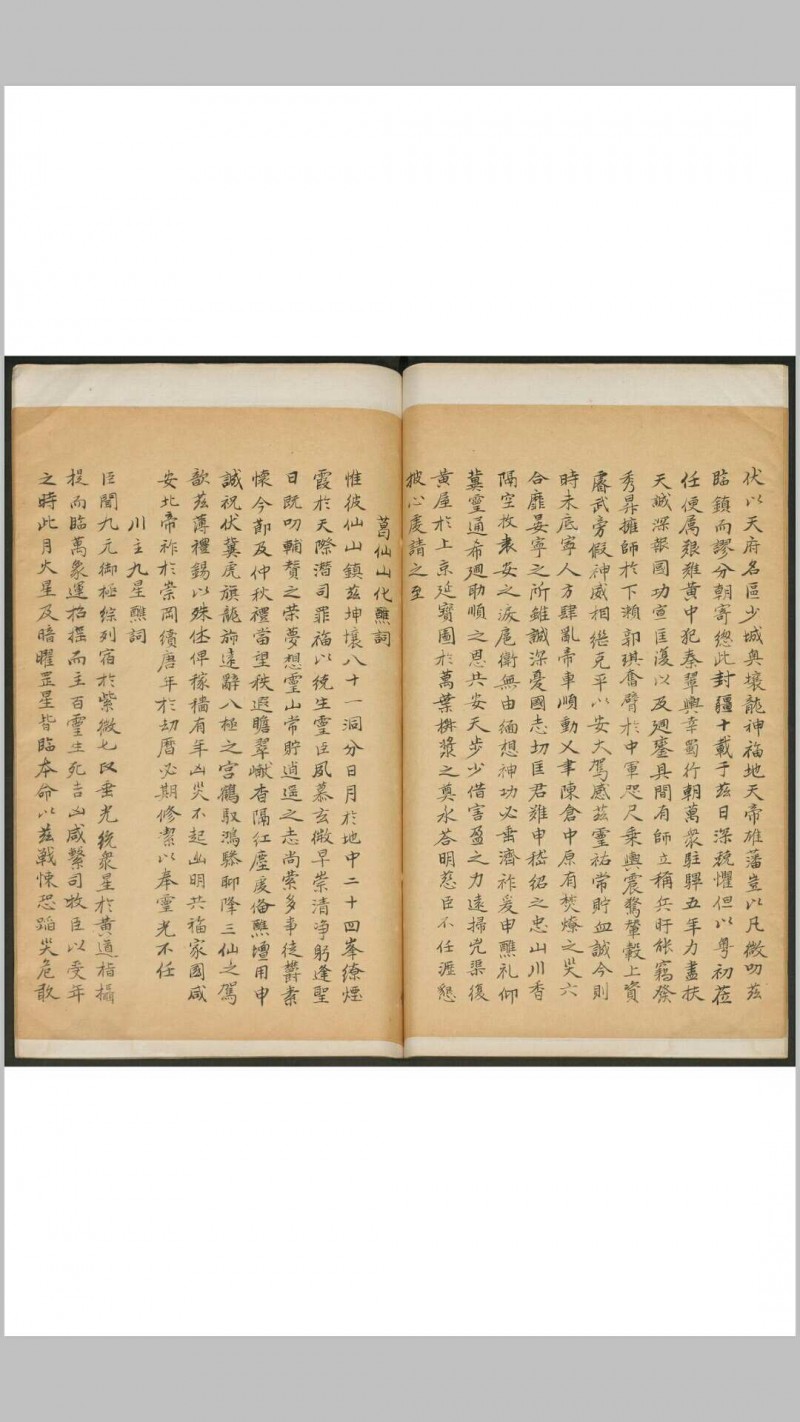 伏以天府名區少城奥壤龍神福地天帝雄藩豈以凡微叨茲
臨鎮而謬分朝寄總此封疆十載于茲日深兢懼但以粤初莅
任便属艱難黄中犯秦翠輿幸蜀行朝萬衆駐驆五年力盡扶
天誠深報國功宣匡復以及廻鑾其間有師立稱兵盱眂竊發
秀昇擁師於下瀨郭琪奮臂於中軍咫尺乘輿震驚輦轂上資
睿武旁假神威相繼克平以安大駕感茲靈祐常貯血誠今則
時未底寧人方肆亂帝車順動又幸陳倉中原有焚燎之災六
合靡晏寧之所雖誠深憂國志切匡君雖申嵇紹之忠山川香
隔空抆袁安之淚扈衛無由緬想神功必垂濟祚爰申醮礼仰
冀靈通希廻助順之恩共安天步少借害盈之力遠掃兇渠復
黄屋於上京延寳圖於萬葉椒漿之奠水荅明慈臣不任瀝懇
披心虔請之至
葛仙山化醮詞
惟彼仙山鎮茲坤壤八十一洞分日月於地中二十四峯繚煙
霞於天際潛司罪福以統生靈臣夙慕玄微早崇清净躬逢聖
日既叨輔賛之榮夢想靈山常貯逍遥之志尚縈多事徒欝素
懷今節及仲秋禮當望秩遐瞻翠巘杳隔紅塵虔俻醮壇用申
誠祝伏冀虎旗龍旆遠辭八極之宮鶴馭鴻驂聊降三仙之駕
歆茲薄禮錫以殊休俾稼穡有年凶災不起幽明共福家國咸
安北帝祚於崇岡續唐年於刧曆必期修潔以奉靈光不任
川主九星醮詞
臣聞九元御極綜列宿於紫微七政垂光統衆星於黄道指攝
提而臨萬象運招摇而主百靈生死吉凶咸繫司牧臣以受年
之時此月火星及暗曜罡星皆臨本命以茲戰悚恐蹈災危敢